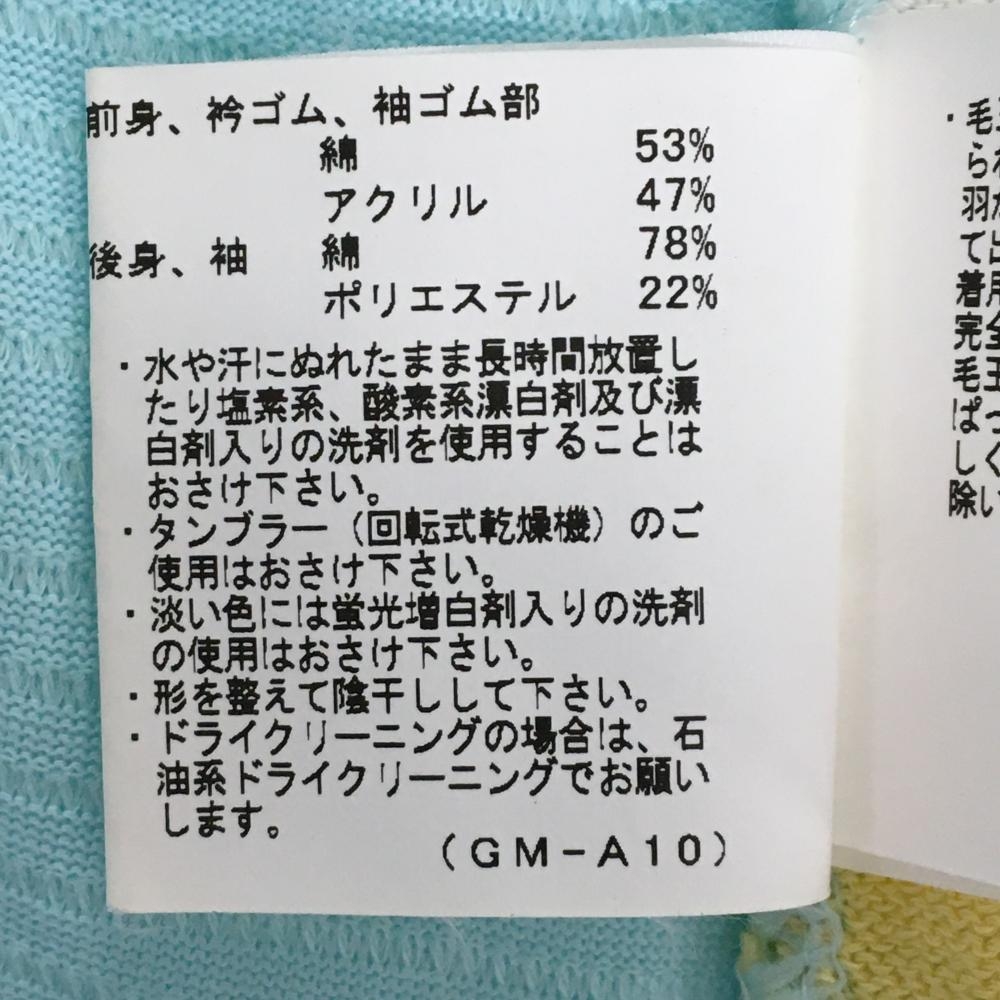 前身、衿ゴム、袖ゴム部
綿 53%
アクリル 47%
後身、袖 綿 78%
ポリエステル 22%
・水や汗にぬれたまま長時間放置し
たり塩素系、酸素系漂白剤及び漂
白剤入りの洗剤を使用することは
おさけ下さい。
・タンブラー（回転式乾燥機）のご
使用はおさけ下さい。
・淡い色には蛍光増白剤入りの洗剤
の使用はおさけ下さい。
・形を整えて陰干しして下さい。
・ドライクリーニングの場合は、石
油系ドライクリーニングでお願い
します。
（GM－A10）
・毛
ら
羽
て出
着用
完全
毛玉
ぱっ
しく
除い